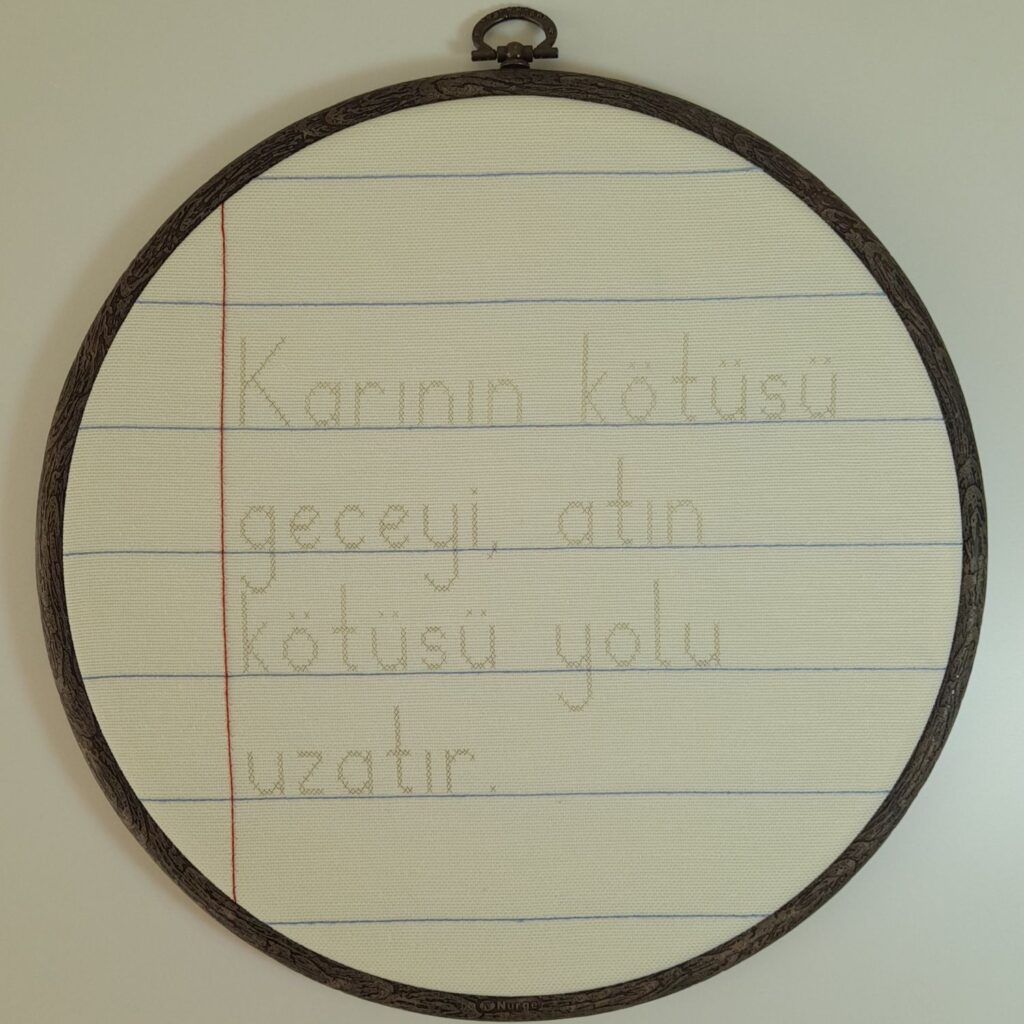 Karının kötüsü
geceyi, atın
kötüsü yolu
uzatır.
Nurge